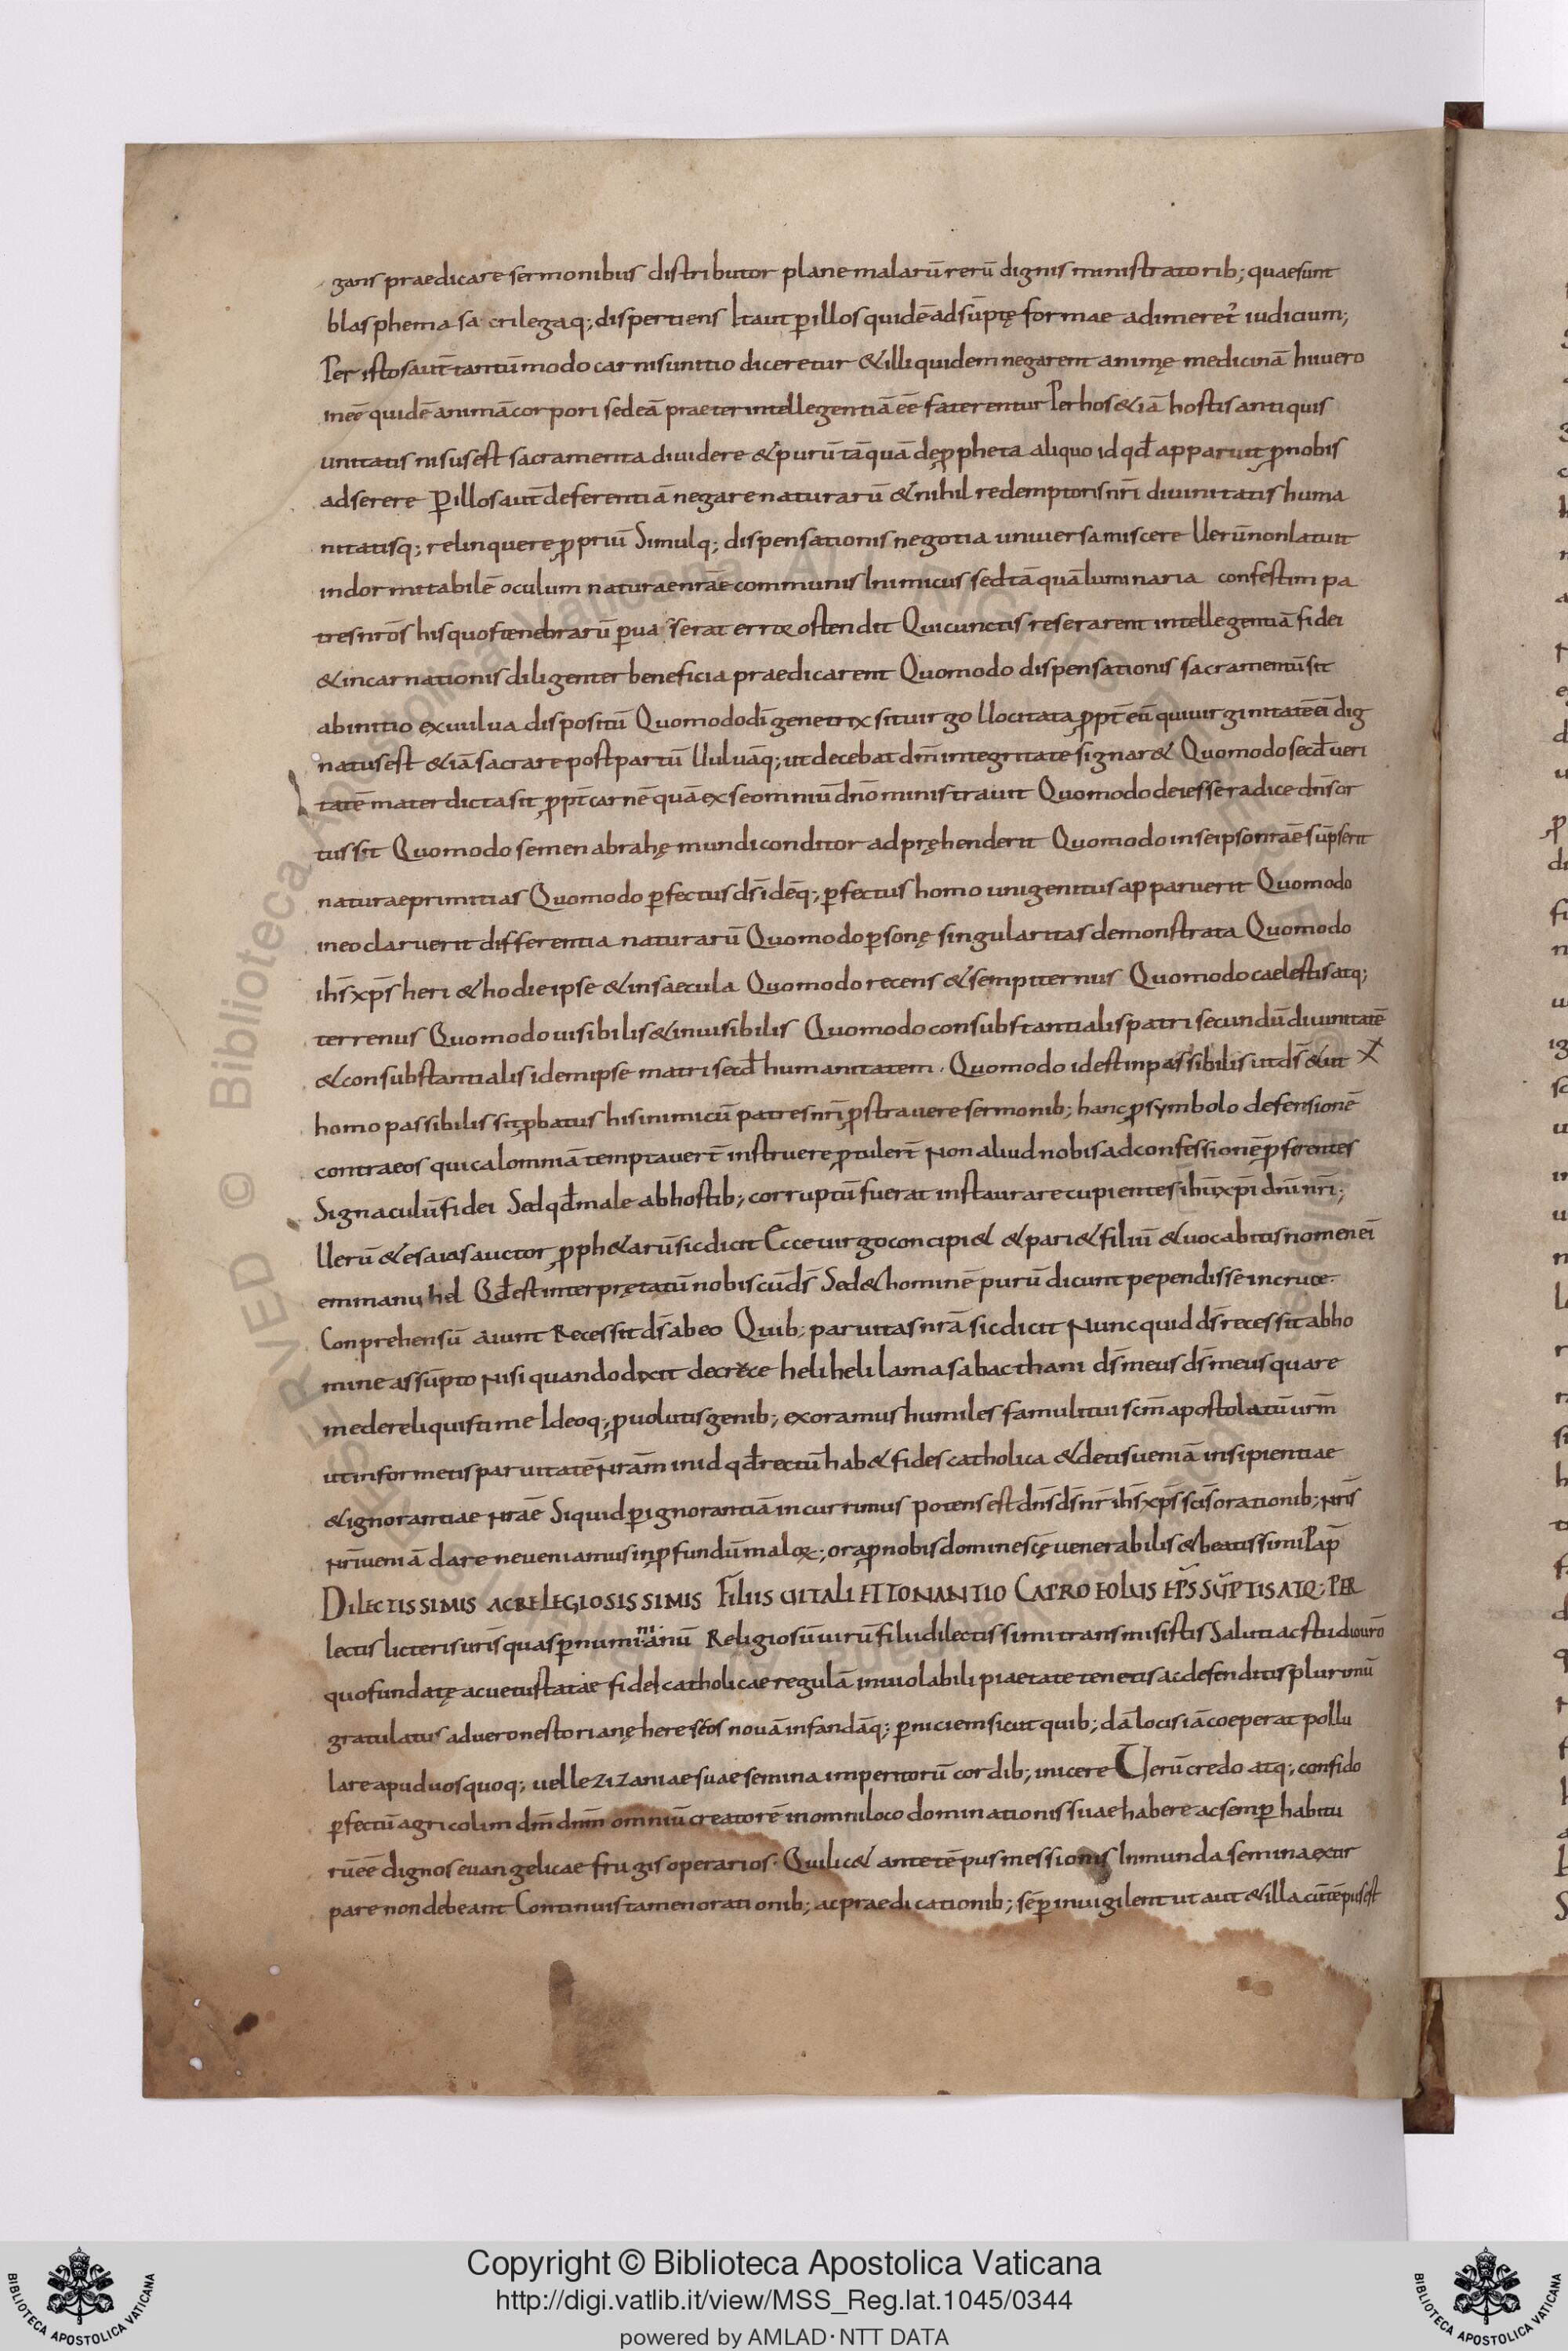 gans praedicare sermonibus distributor plane malarū rerū dignis ministratorib; quae sunt
blasphema sacrilegaq; dispertiens Ita ut ꝑ illos quidē adsūptę formae adimeret̉ iudicium;
Per istos aut̄ tantūmodo carnis unitio diceretur & illi quidem negarent animę medicinā hii uero
ineē quidē animā corpori sed eā praeter intellegentiā eē faterentur Per hos & iā hostis antiquis
unitatis nisus est sacramenta diuidere & purū tāquā de ꝓpheta aliquo id qd̄ apparuit ꝓ nobis
adserere Ꝑ illos aut̄ deferentiā negare naturarū & nihil redemptoris nr̄i diuinitatis huma
nitatisq; relinquere ꝓpriū Simulq; dispensationis negotia uniuersa miscere Uerū non latuit
indormitabilē oculum naturae nr̄ae communis Inimicus sed tāquā luminaria confestim pa
tres nr̄os his quos tenebrarū ꝑuaserat error ostendit Qui cunctis reserarent intellegentiā fidei
& incarnationis diligenter beneficia praedicarent Quomodo dispensationis sacramentū sit
ab initio ex uulua dispositū Quomodo dī genetrix sit uirgo Uocitata ꝓpt̄ eū qui uirginitatē ei dig
natus est & iā sacrare post partū Uuluāq; ut decebat dm̄ integritate signar& Quomodo secd̄ ueri
tatē mater dicta sit ꝓpt̄ carnē quā ex se omniū dn̄o ministrauit Quomodo de iesse radice dn̄s or
tus sit Quomodo semen abrahę mundi conditor adpręhenderit Quomodo in se ipso nr̄ae sūpserit
naturae primitias Quomodo ꝑfectus ds̄ idēq; ꝑfectus homo unigenitus apparuerit Quomodo
in eo claruerit differentia naturarū Quomodo ꝑsonę singularitas demonstrata Quomodo
ihs̄ xp̄s heri & hodie ipse & in saecula Quomodo recens & sempiternus Quomodo caelestis atq;
terrenus Quomodo uisibilis & inuisibilis Quomodo consubstantialis patri secundū diuinitatē
& consubstantialis idem ipse matri secd̄ humanitatem. Quomodo id est inpassibilis ut ds̄ & ut
homo passibilis sit ꝓbatus his inimicū patres nr̄i ꝓstrauere sermonib; hanc ꝓ symbolo defensionē
contra eos qui calomniā temptauer̄t instruere ꝓtuler̄t Non aliud nobis ad confessionē ꝓferentes
Signaculū fidei Sed qd̄ male ab hostib; corruptū fuerat instaurare cupientes ihū xp̄i dn̄i nr̄i;
Uerū & esaias auctor ꝓph&arū sic dicit Ecce uirgo concipi& & pari& filiū & uocabitis nomen eī
emmanuhel Qd̄ est interprętatū nobiscū ds̄ Sed & hominē purū dicunt pependisse in cruce.
Conprehensū aiunt Recessit ds̄ ab eo Quib; paruitas nr̄ā sic dicit Nunc quid ds̄ recessit ab ho
mine assūpto Nisi quando dixit de cruce heli heli lama sabacthani ds̄ meus ds̄ meus quare
me dereliquisti me Ideoq; ꝓuolutis genib; exoramus humiles famuli tui scm̄ apostolatū ur̄m
ut informetis paruitatē nr̄ām in id qd̄ rectū hab& fides catholica & detis ueniā insipientiae
& ignorantiae nr̄ae Si quid ꝑ ignorantiā incurrimus potens est dn̄s ds̄ nr̄ ihs̄ xp̄s scīs orationib; nr̄is
nr̄i ueniā dare ne ueniamus in ꝓfundū malor; ora ꝓ nobis domine scę uenerabilis & beatissimi Pap̄
DILECTISSIMIS AC RELEGIOSISSIMIS FILIIS UITALI ET TONANTIO CAPREOLUS EP̄S SŪPTIS ATQ; PER
lectis licteris ur̄is quas ꝑ numinianū Religiosū uirū filii dilectissimi transmisistis Saluti ac studio urō
quo fundatę ac uetustatae fidei catholicae regulā inuiolabili piaetate tenetis ac defenditis plurimū
gratulatus aduero nestorianę hereseos nouā infandāq; ꝑniciem sicut quib; dā locis iā coeperat pollu
lare apud uos quoq; uelle zizaniae suae semina imperitorū cordib; inicere Uerū credo atq; confido
ꝑfectū agricolim dm̄ dnm̄ omniū creatorē in omni loco dominationis suae habere ac semꝑ habitu
rū eē dignos euangelicae frugis operarios. Qui lic& ante tēpus messionis Inmunda semina extir
pare non debeant Continuis tamen orationib; ac praedicationib; sēꝑ inuigilent ut aut & illa cū tēpus est
Copyright © Biblioteca Apostolica Vaticana
http://digi.vatlib.it/view/MSS_Reg.lat.1045/0344
powered by AMLAD·NTT DATA
BIBLIOTECA APOSTOLICA VATICANA
BIBLIOTECA APOSTOLICA VATICANA